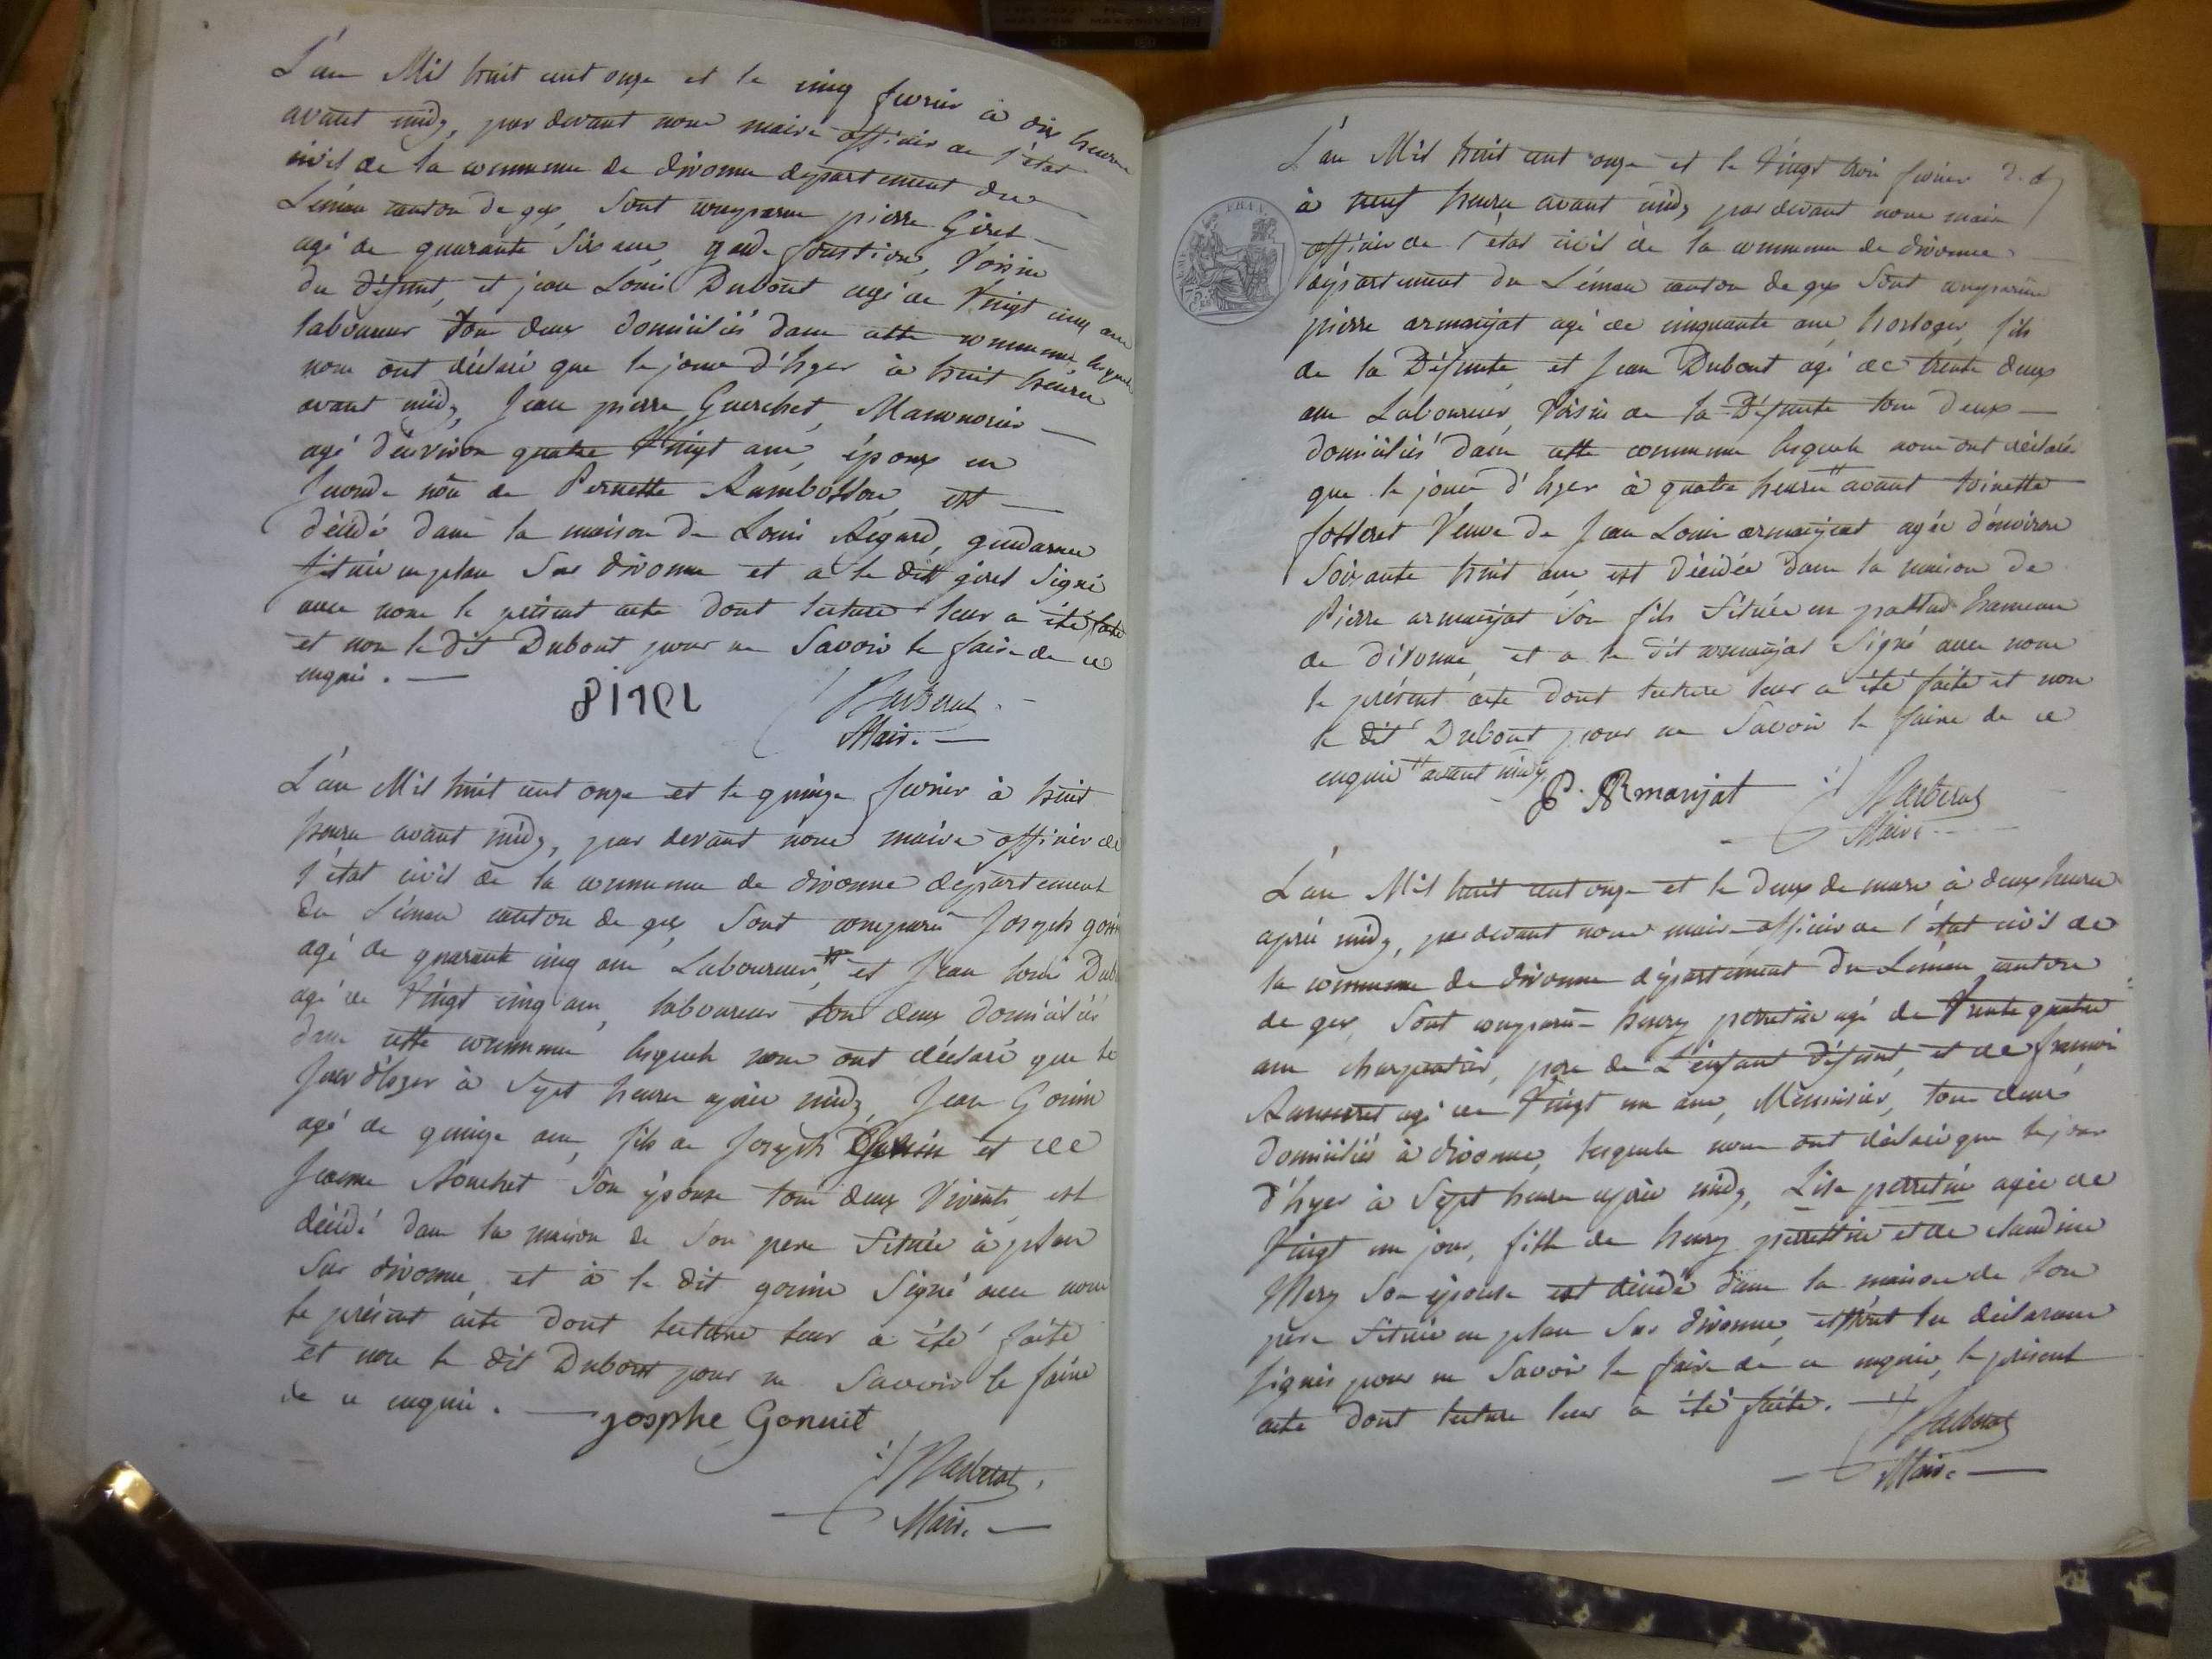 L'an Mil huit cent onze et le cinq fevrier à dix heures
avant midy, par devant nous maire officier de l'état
civil de la commune de divonne département du
Léman canton de gex, Sont comparus pierre Girel
agé de quarante six ans, garde foustier, Voisin
du défunt, et jean Louis Dubout agé de Vingt cinq ans
laboureur Tous deux domiciliés dans cette commune, lesquels
nous ont déclaré que le jour d'hyer à huit heures
avant midy, Jean pierre Guerchet, Manounier
agé d'environ quatre Vingt ans, époux en
seconde nôce de Pernette Rambosson, est
décédé dans la maison de Louis Régard, gendarme
située en plan Sur divonne et a le dit girel Signé
avec nous le présent acte dont lecture leur a été faite
et non le dit Dubout pour ne Savoir le faire de ce
enquis.
Girel Maire.
L'an Mil huit cent onze et le quinze fevrier à huit
heures avant midy, par devant nous maire officier de
l'état civil de la commune de divonne département
du Léman canton de gex, Sont comparus Joseph
agé de quarante cinq ans Laboureur, et Jean Louis
agé de Vingt cinq ans, laboureur tous deux domiciliés
dans cette commune lesquels nous ont déclaré que le
jour d'hyer à Sept heures après midy, Jean Gonin
agé de quinze ans, fils de Joseph Gonin et de
Jeanne Rouchet Son épouse tous deux Vivants, est
décédé dans la maison de Son pere Située à plan
Sur divonne, et à le dit gonin Signé avec nous
le présent acte dont lecture leur a été faite
et non le dit Dubout pour ne Savoir le faire
de ce enquis. josphe Gonuit
Maire.
L'an Mil huit cent onze et le Vingt trois fevrier
à neuf heures avant midy par devant nous maire
officier de l'état civil de la commune de divonne
département du Léman canton de gex Sont comparus
pierre armanjat agé de cinquante ans, horloger, fils
de la Défunte, et Jean Dubout agé de trente deux
ans Laboureur, Voisin de la Défunte tous deux
domiciliés dans cette commune lesquels nous ont déclarés
que le jour d'hyer à quatre heures avant toinette
fosseret Veuve de Jean Louis armanjat agée d'environ
Soixante huit ans, est décédée dans la maison de
Pierre armanjat Son fils Située en hameau
de divonne, et a le dit armanjat Signé avec nous
le présent acte dont lecture leur a été faite et non
le dit Dubout pour ne Savoir le faire de ce
enquis avant midy
P. ARmanjat Maire.
L'an Mil huit cent onze et le Deux de mars à deux heures
après midy, par devant nous maire officier de l'état civil de
la commune de divonne département du Léman canton
de gex, Sont comparus henry perretin agé de trente quatre
ans charpentier, pere de L'enfant défunt, et de francois
agé de Vingt un ans, Menuisier, tous deux
domiciliés à divonne, lesquels nous ont déclaré que le jour
d'hyer à Sept heures après midy, Lise perretin agée de
Vingt un jour, fille de henry perrettin et de claudine
Mery Son épouse est décédé dans la maison de Son
pere Située en plan Sur divonne, les déclarants
signés pour ne Savoir le faire de ce enquis, le présent
acte dont lecture leur a été faite.
Maire.